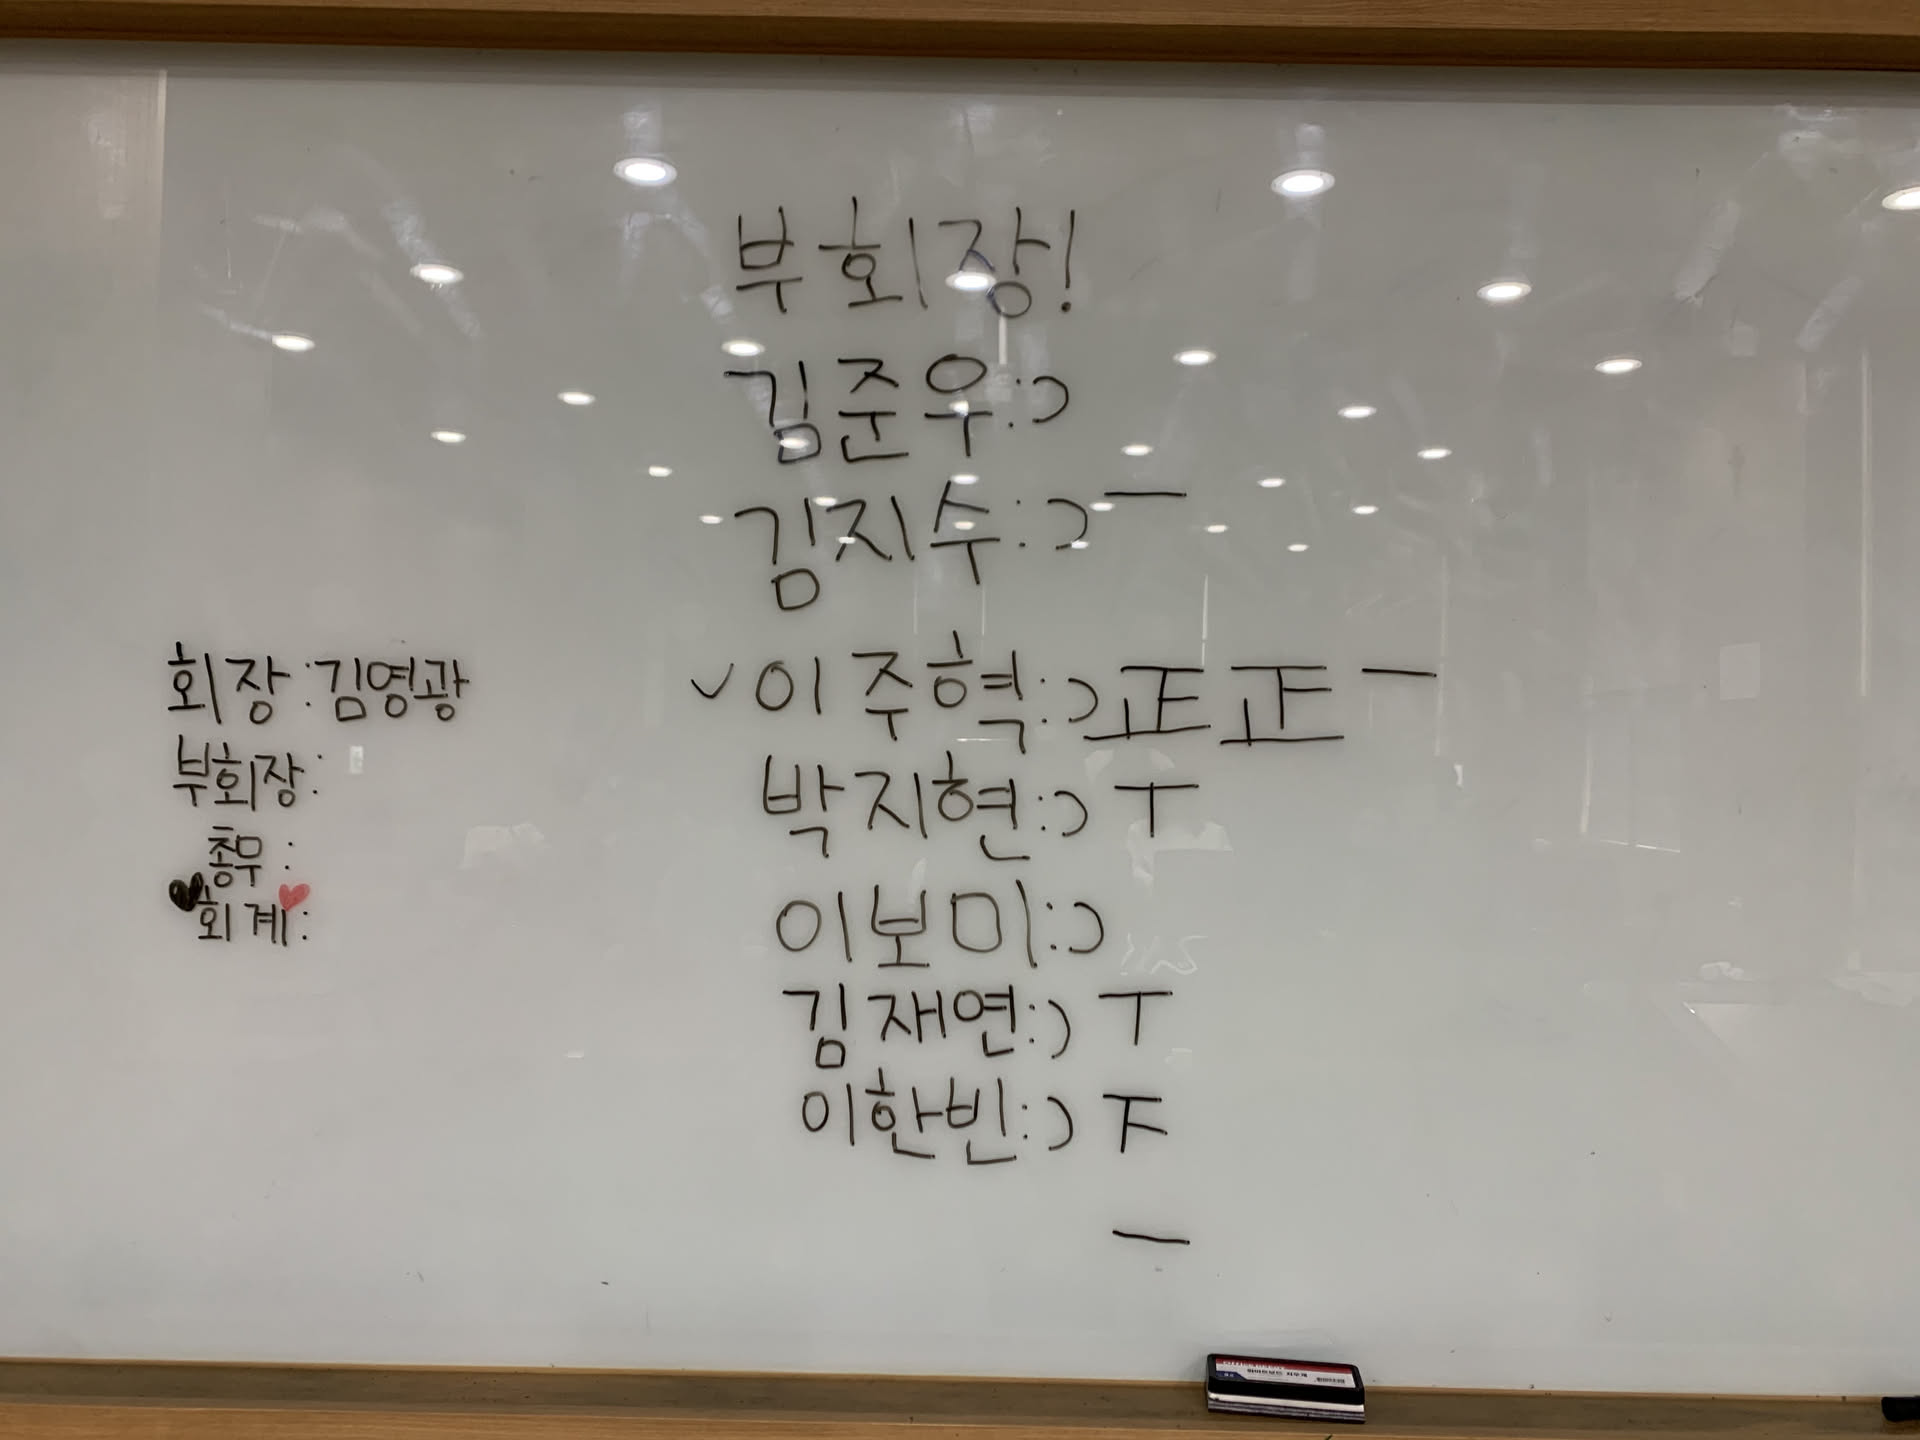 부회장!
김준우:)
김지수:) 一
✓이주혁:) 正正一
박지현:) T
이보미:)
김재연:) T
이한빈:) 下
一
회장:김영광
부회장:
총무:
♥회계♥: